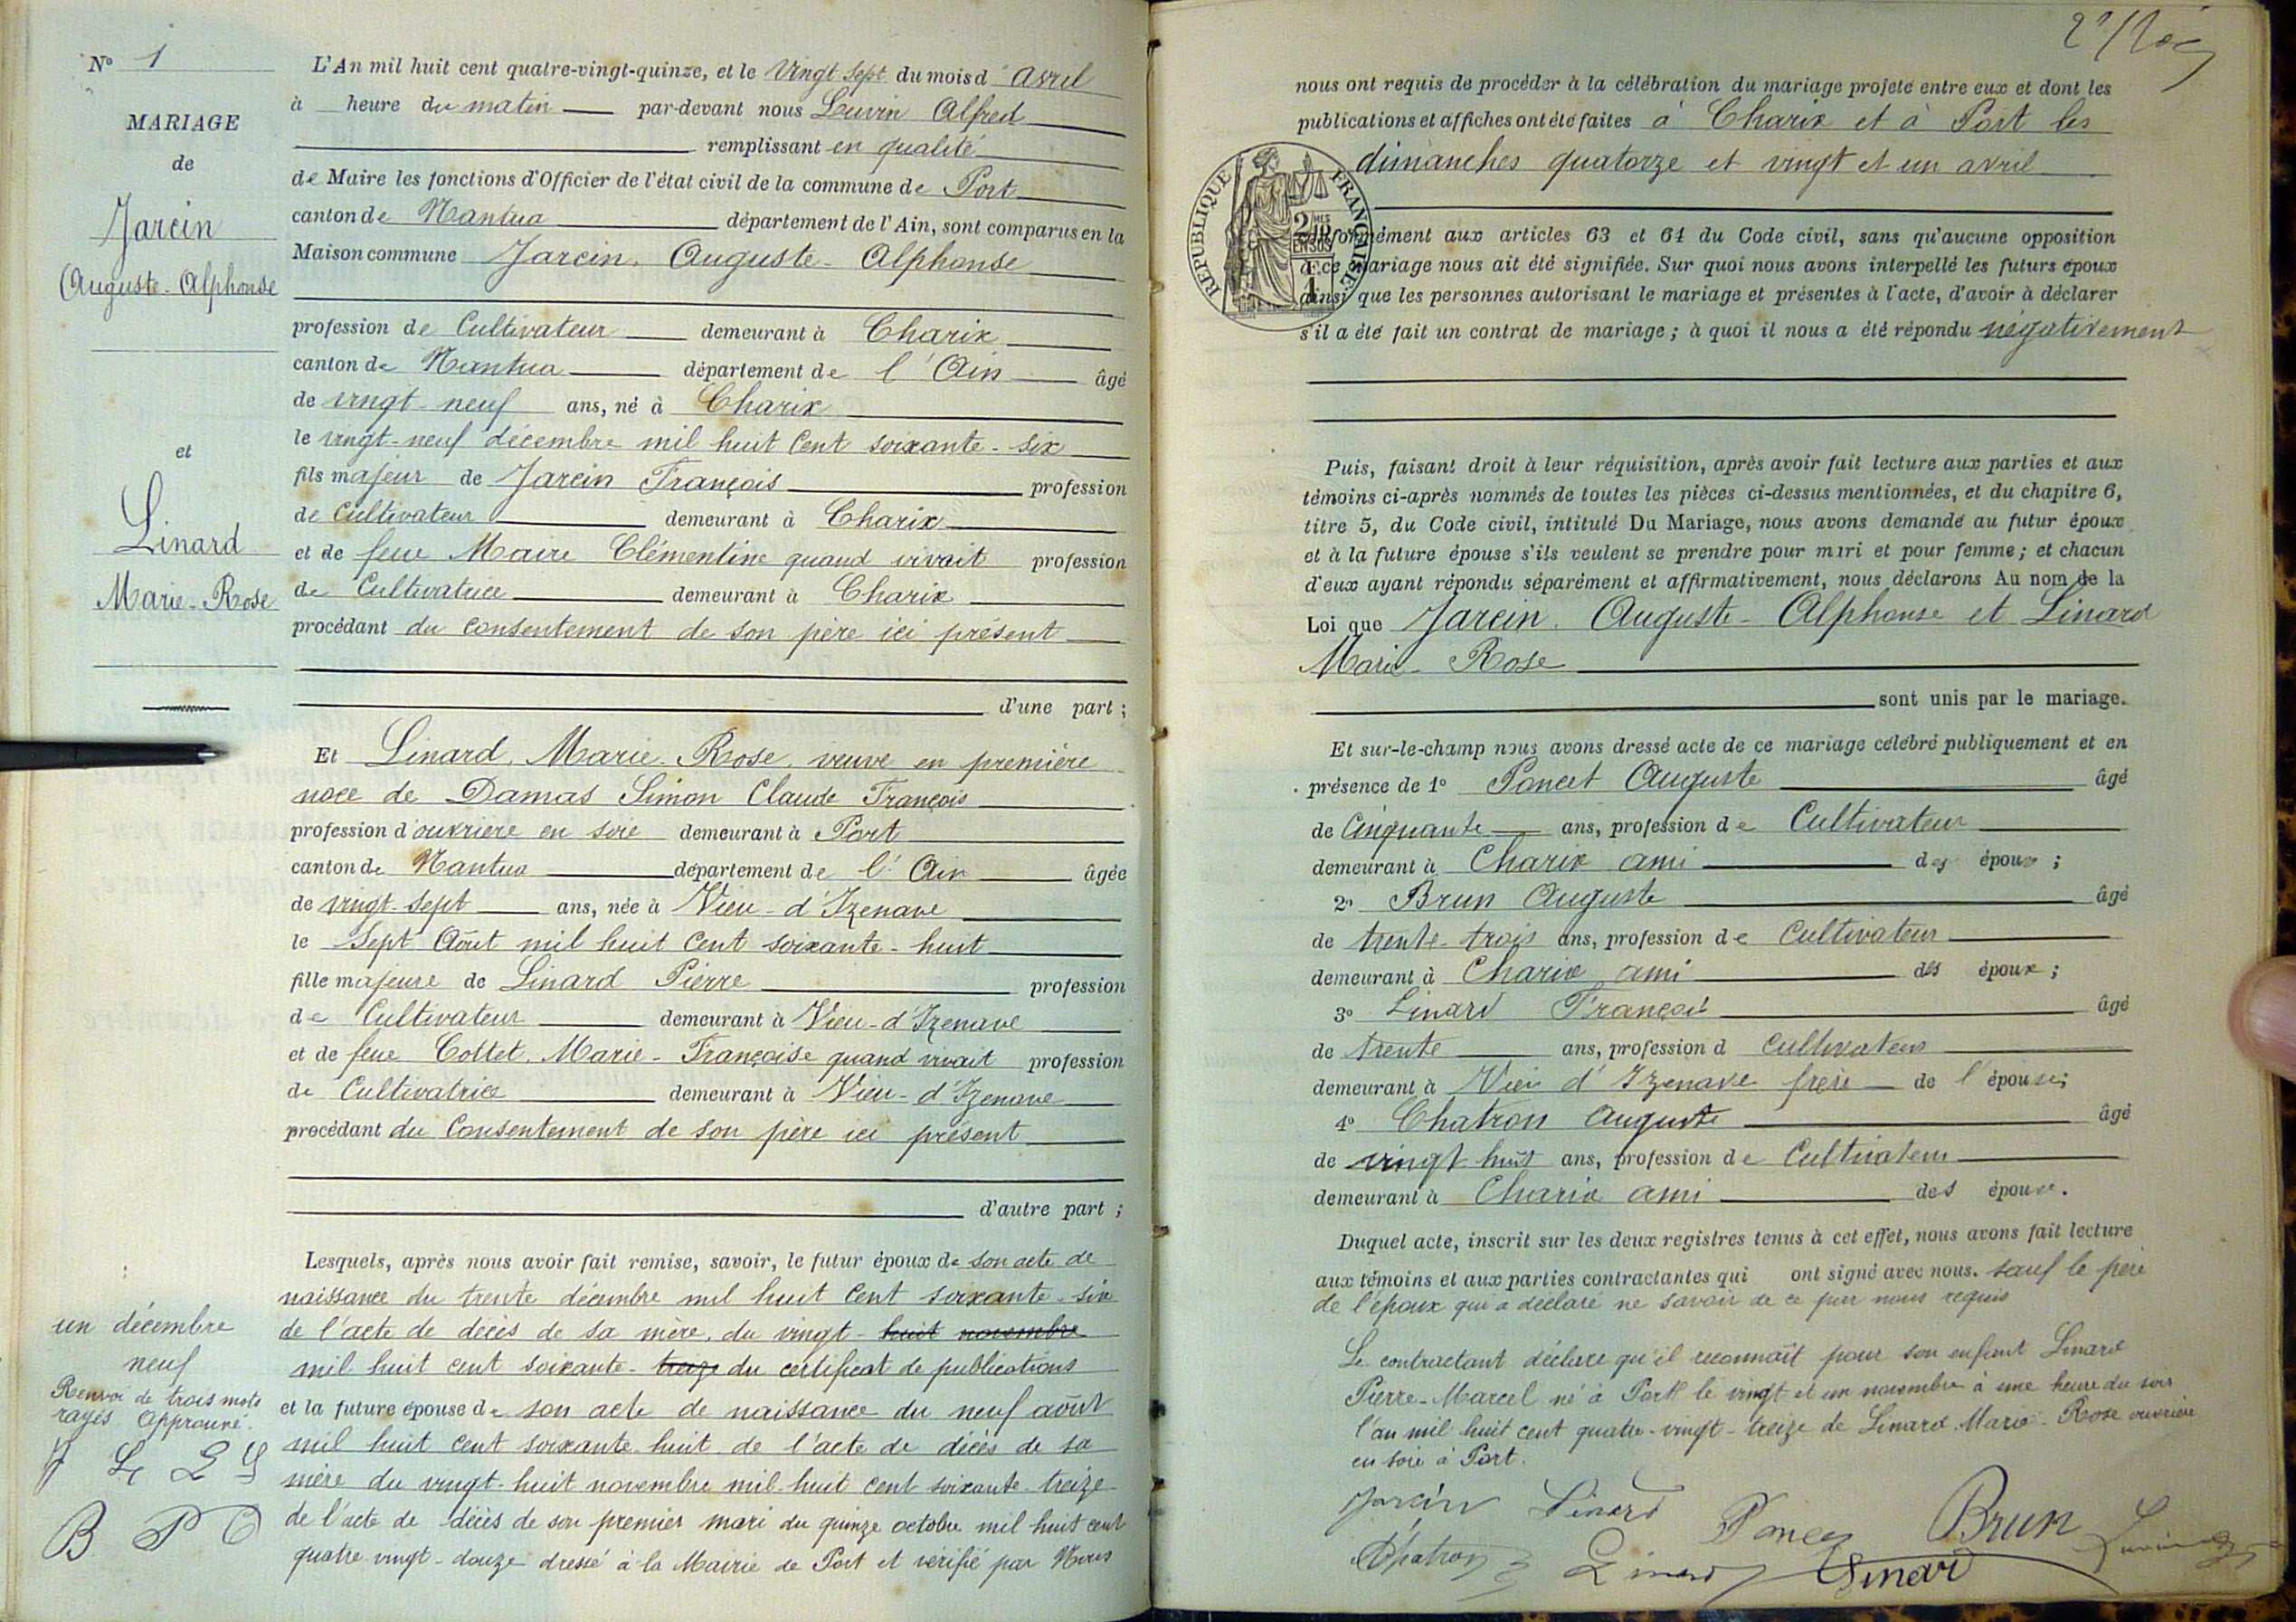 N° 1
MARIAGE
de
Jarcin
Auguste-Alphonse
et
Linard
Marie-Rose
L'An mil huit cent quatre-vingt-quinze, et le Vingt sept du mois d'avril
à heure du matin par-devant nous Louvrin Alfred
remplissant en qualité
de Maire les fonctions d'Officier de l'état civil de la commune de Port
canton de Nantua département de l'Ain, sont comparus en la
Maison commune Jarcin Auguste-Alphonse
profession de Cultivateur demeurant à Charix
canton de Nantua département de l'Ain âgé
de vingt-neuf ans, né à Charix
le vingt-neuf décembre mil huit cent soixante-six
fils majeur de Jarcin François profession
de Cultivateur demeurant à Charix
et de feue Maire Clémentine quand vivait profession
de Cultivatrice demeurant à Charix
procédant du consentement de son père ici présent
d'une part ;
Et Linard, Marie-Rose, veuve en première
noce de Damas Simon Claude François
profession d'ouvrière en soie demeurant à Port
canton de Nantua département de l'Ain âgée
de vingt-sept ans, née à Vieu-d'Izenave
le Sept Août mil huit cent soixante-huit
fille majeure de Linard Pierre profession
de Cultivateur demeurant à Vieu-d'Izenave
et de feue Collet, Marie-Françoise quand vivait profession
de Cultivatrice demeurant à Vieu-d'Izenave
procédant du Consentement de son père ici présent
d'autre part ;
Lesquels, après nous avoir fait remise, savoir, le futur époux de son acte de
naissance du trente décembre mil huit cent soixante-six
de l'acte de décès de sa mère, du vingt-huit novembre
mil huit cent soixante-treize du certificat de publications
et la future épouse de son acte de naissance du neuf août
mil huit cent soixante-huit de l'acte de décès de sa
mère du vingt-huit novembre mil huit cent soixante-treize
de l'acte de décès de son premier mari du quinze octobre mil huit cent
quatre-vingt-douze dressé à la Mairie de Port et vérifié par Nous
un décembre
neuf
Renvoi de trois mots
rayés Approuvé.
B P C
nous ont requis de procéder à la célébration du mariage projeté entre eux et dont les
publications et affiches ont été faites à Charix et à Port les
dimanches quatorze et vingt et un avril
RÉPUBLIQUE FRANÇAISE
conformément aux articles 63 et 64 du Code civil, sans qu'aucune opposition
à ce mariage nous ait été signifiée. Sur quoi nous avons interpellé les futurs époux
ainsi que les personnes autorisant le mariage et présentes à l'acte, d'avoir à déclarer
s'il a été fait un contrat de mariage ; à quoi il nous a été répondu négativement
Puis, faisant droit à leur réquisition, après avoir fait lecture aux parties et aux
témoins ci-après nommés de toutes les pièces ci-dessus mentionnées, et du chapitre 6,
titre 5, du Code civil, intitulé Du Mariage, nous avons demandé au futur époux
et à la future épouse s'ils veulent se prendre pour mari et pour femme ; et chacun
d'eux ayant répondu séparément et affirmativement, nous déclarons Au nom de la
Loi que Jarcin Auguste-Alphonse et Linard
Marie-Rose
sont unis par le mariage.
Et sur-le-champ nous avons dressé acte de ce mariage célébré publiquement et en
présence de 1° Poncet Auguste âgé
de Cinquante ans, profession de Cultivateur
demeurant à Charix ami des époux ;
2° Brun Auguste âgé
de trente-trois ans, profession de Cultivateur
demeurant à Charix ami des époux ;
3° Linard François âgé
de trente ans, profession d cultivateur
demeurant à Vieu d'Izenave frère de l'épouse ;
4° Chatron Auguste âgé
de vingt huit ans, profession de Cultivateur
demeurant à Charix ami des époux.
Duquel acte, inscrit sur les deux registres tenus à cet effet, nous avons fait lecture
aux témoins et aux parties contractantes qui ont signé avec nous. sauf le père
de l'époux qui a déclaré ne savoir de ce par nous requis
Le contractant déclare qu'il reconnaît pour son enfant Linard
Pierre-Marcel né à Port le vingt et un novembre à une heure du soir
l'an mil huit cent quatre-vingt-treize de Linard Marie-Rose ouvrière
en soie à Port.
Jarcin Linard Poncet Brun
Chatron Linard Linard